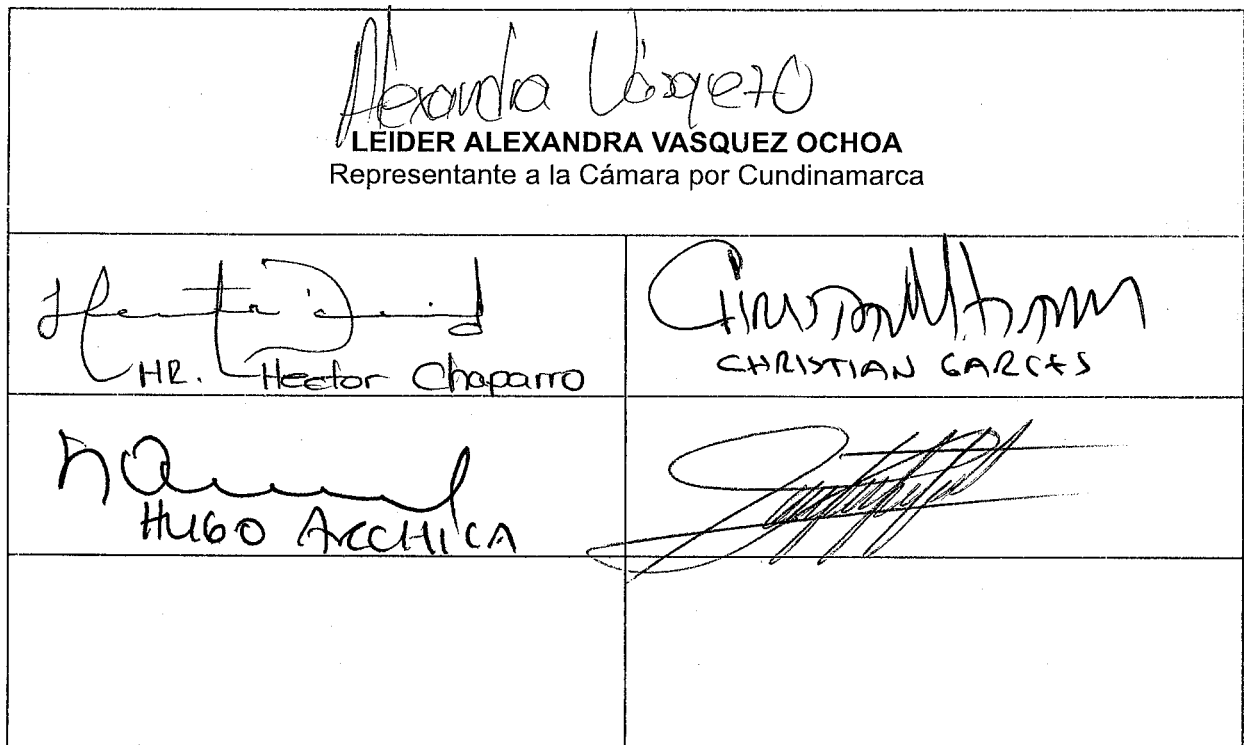 Alexandra Vásquez O
LEIDER ALEXANDRA VASQUEZ OCHOA
Representante a la Cámara por Cundinamarca
HR. Hector Chaparro
CHRISTIAN GARCES
HUGO ARCHICA